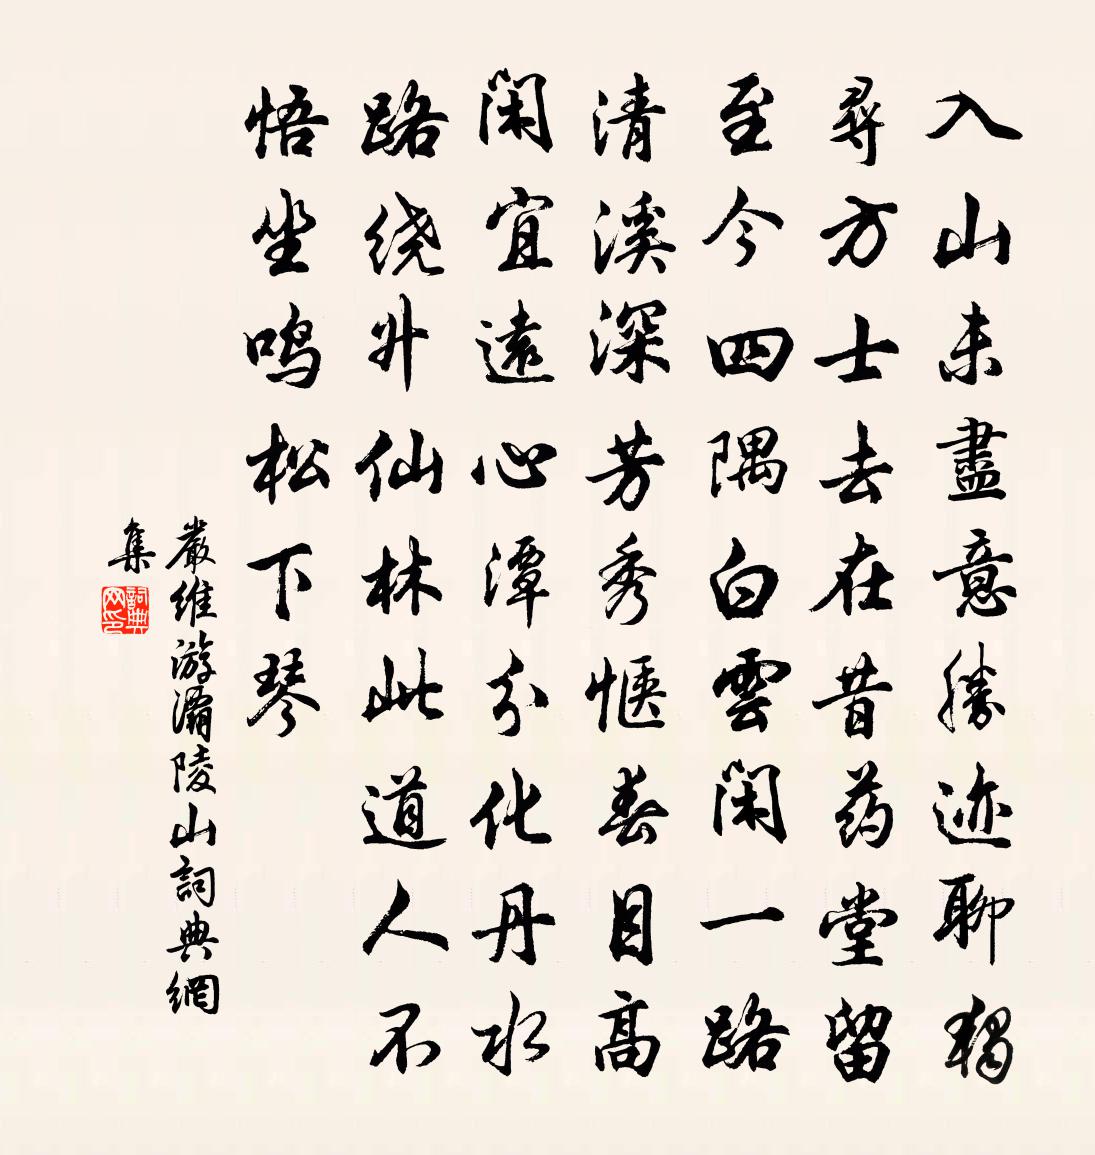 入山未盡意勝迹聊獨
尋方士去在昔药堂留
至今四隅白雲闲一路
清溪深芳秀惬春目高
闲宜遠心潭分化丹水
路绕升仙林此道人不
悟坐鸣松下琴
嚴维游灞陵山詞典網
集
詞典
网印